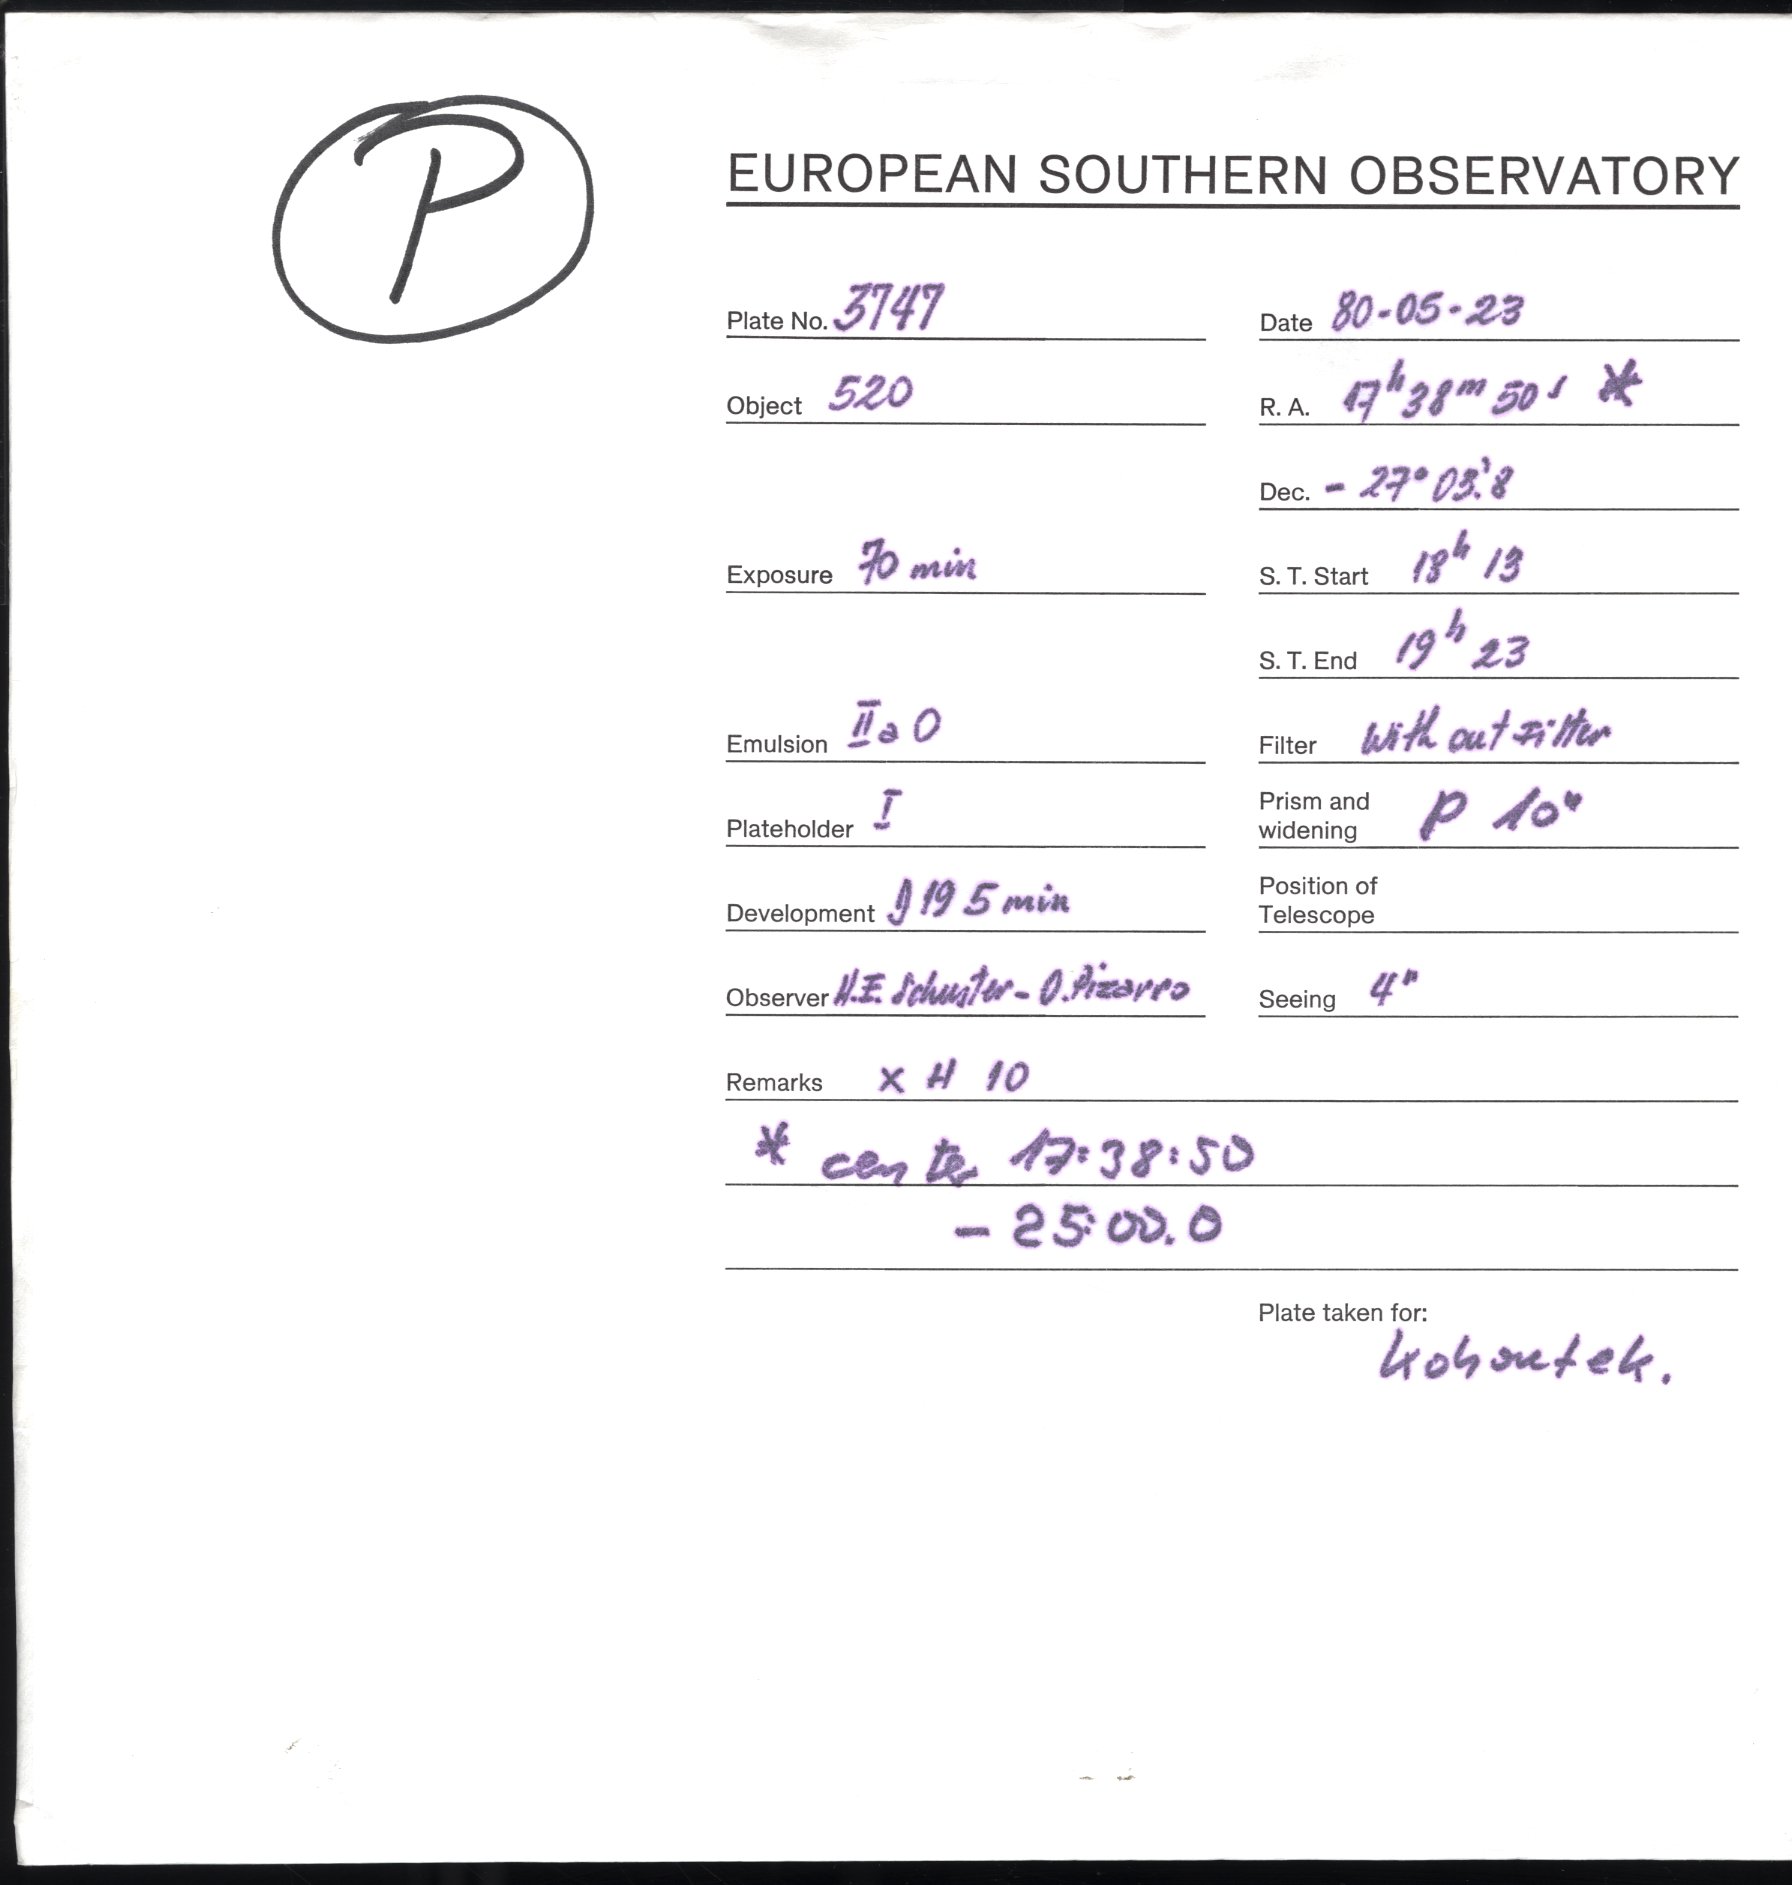 P
EUROPEAN SOUTHERN OBSERVATORY
Plate No. 3747
Date 80-05-23
Object 520
R. A. 17h 38m 50s *
Dec. - 27° 03'.8
Exposure 70 min
S. T. Start 18h 13
S. T. End 19h 23
Emulsion IIa O
Filter With out Filter
Plateholder I
Prism and
widening P 10"
Development D 19 5 min
Position of
Telescope
Observer H.E. Schuster - O. Pizarro
Seeing 4"
Remarks X H 10
* center 17:38:50
- 25:00.0
Plate taken for:
Kohoutek.